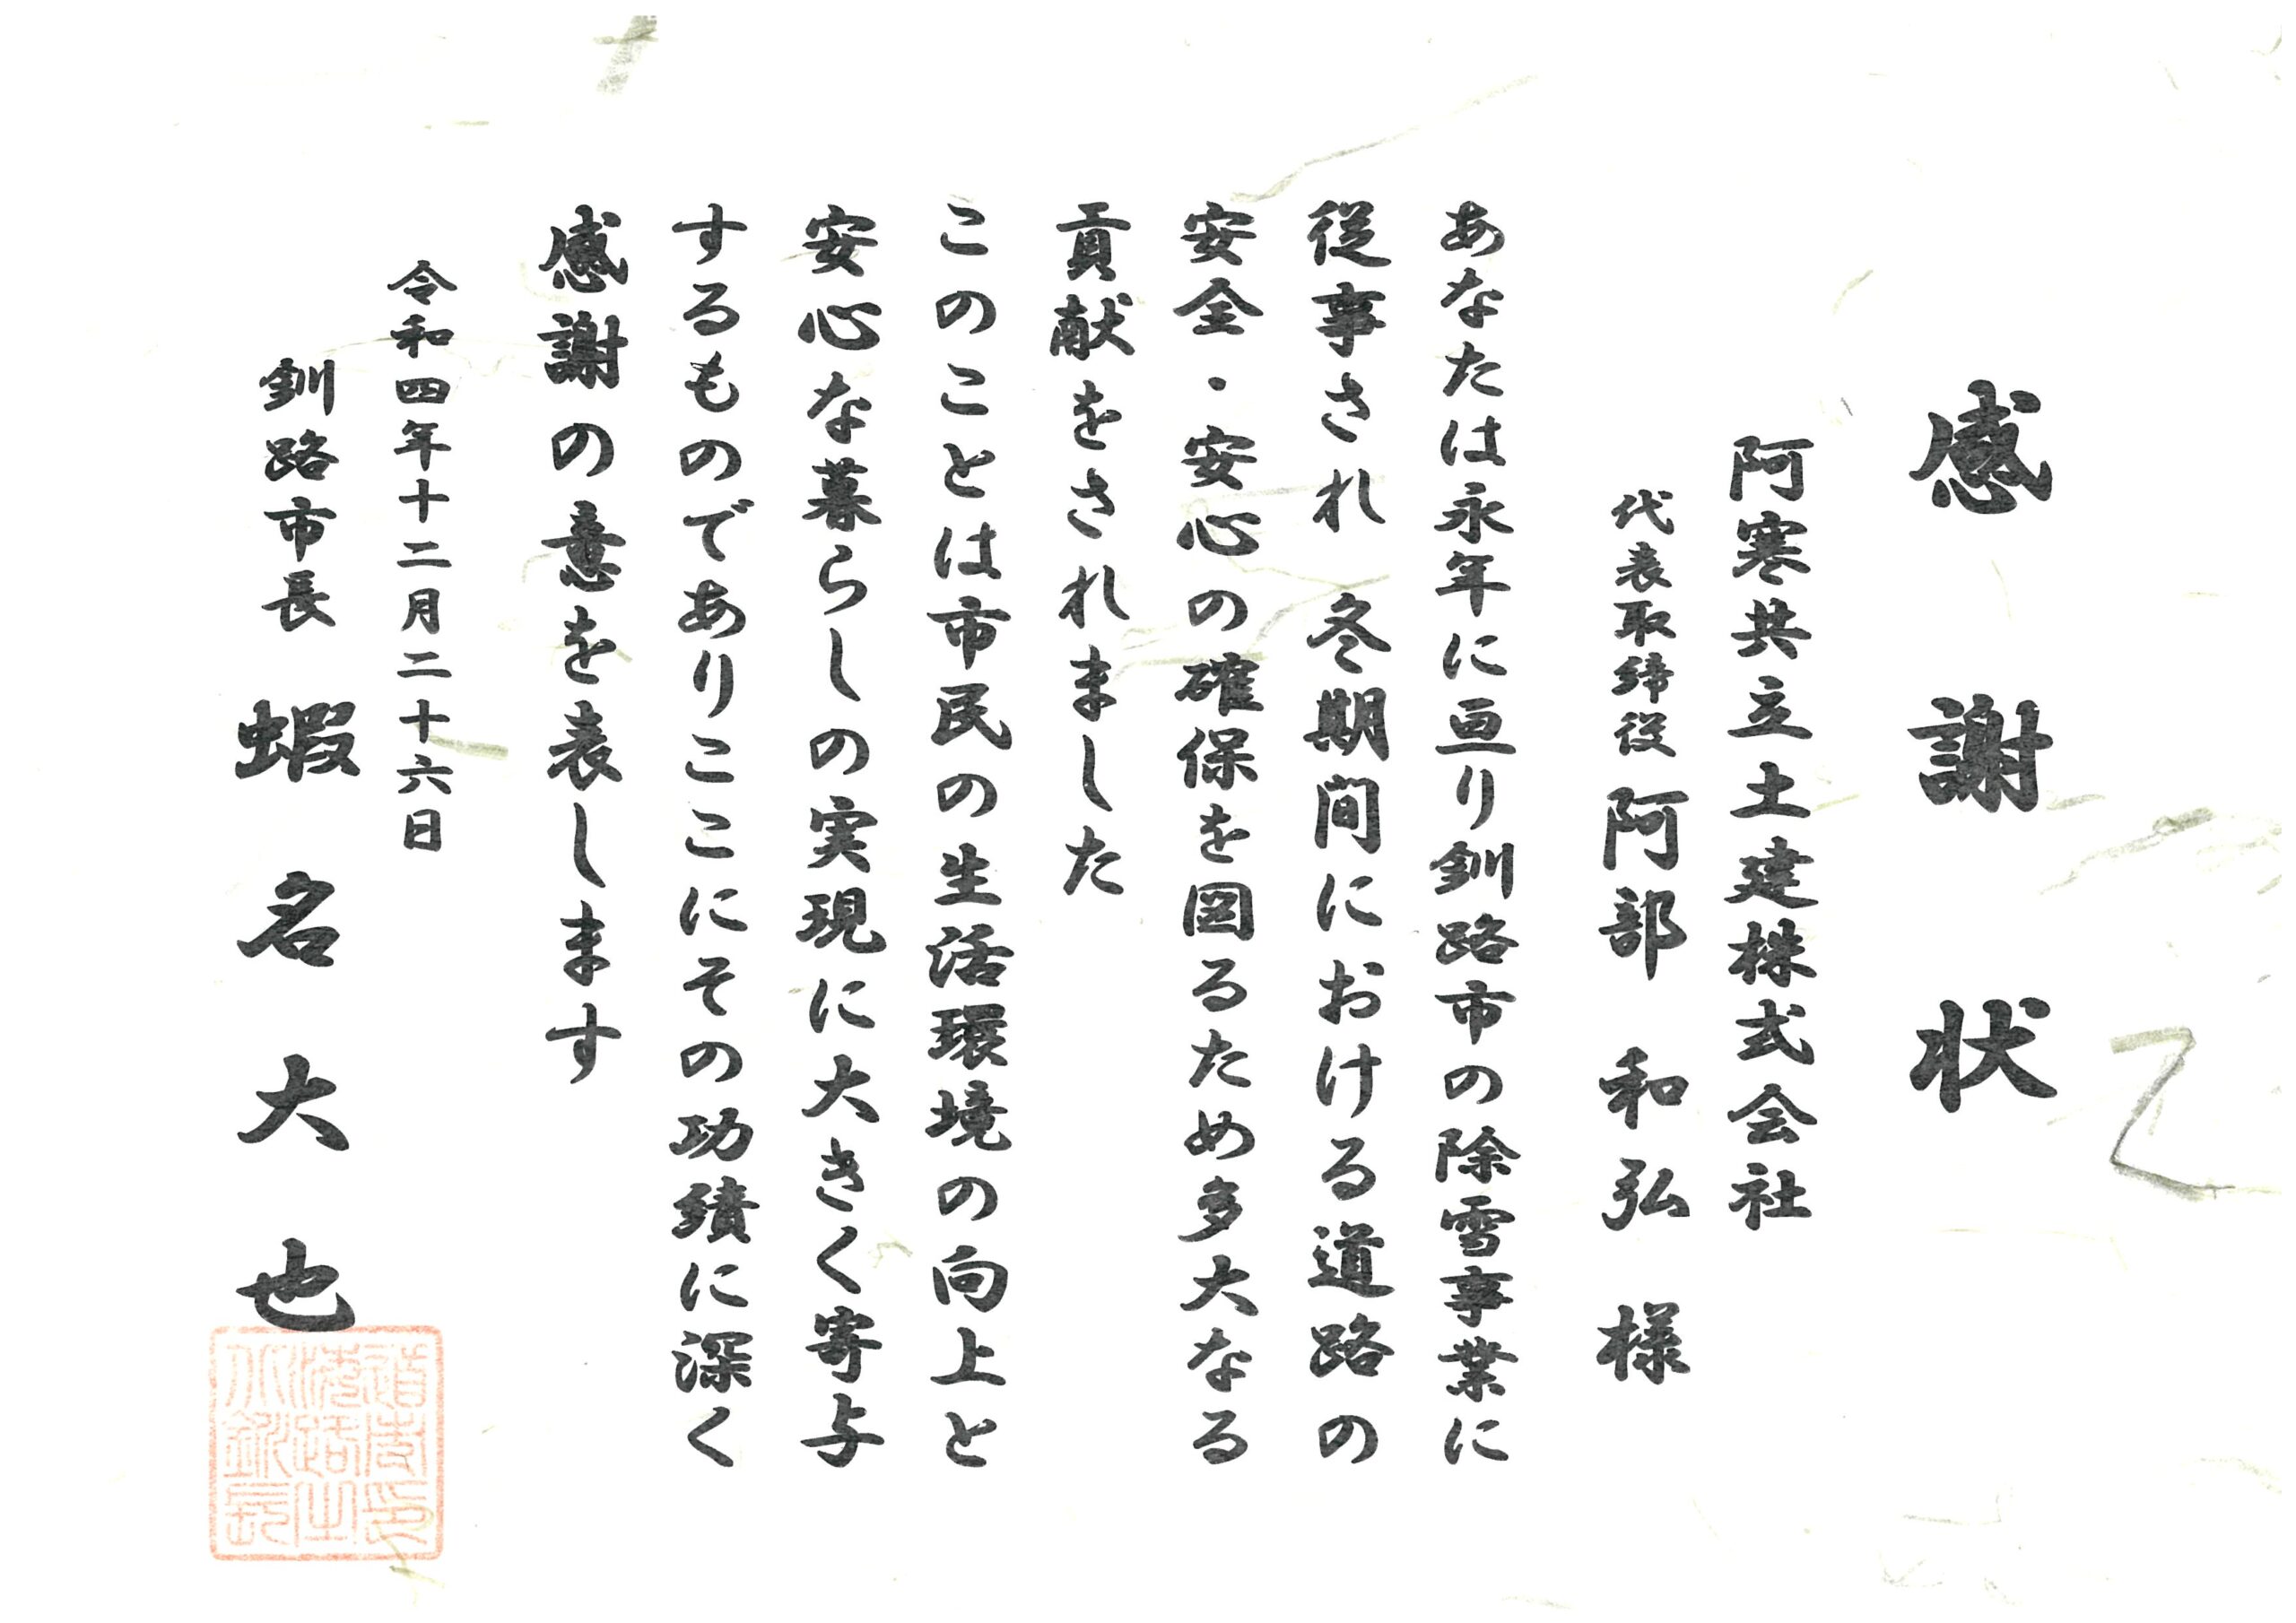 感謝状
阿寒共立土建株式会社
代表取締役 阿部 和弘 様
あなたは永年に亘り釧路市の除雪事業に
従事され 冬期間における道路の
安全・安心の確保を図るため多大なる
貢献をされました
このことは市民の生活環境の向上と
安心な暮らしの実現に大きく寄与
するものでありここにその功績に深く
感謝の意を表します
令和四年十二月二十六日
釧路市長 蝦名大也